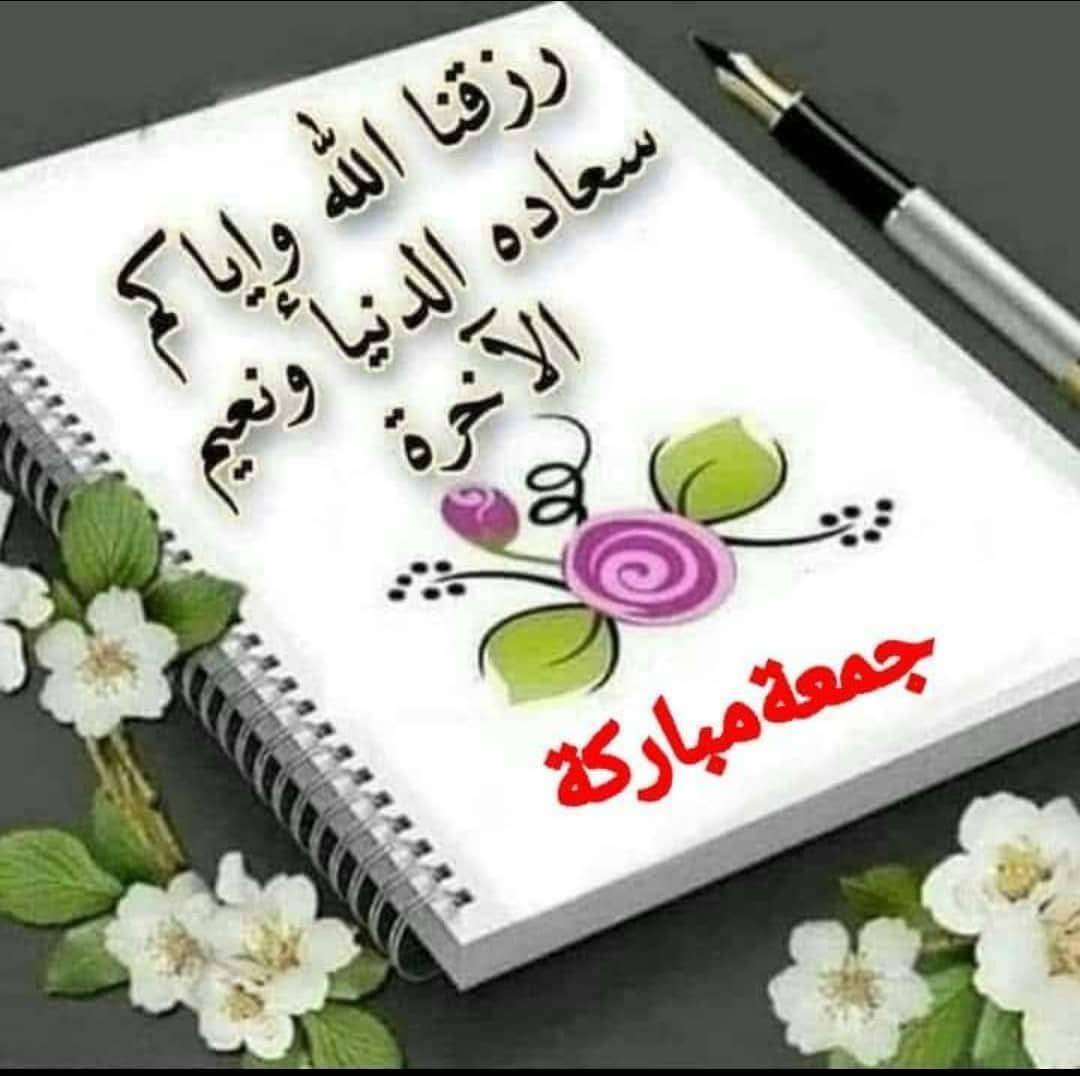 رزقنا الله وإياكم
سعاده الدنيأ ونعيم
الآخرة
جمعة مباركة